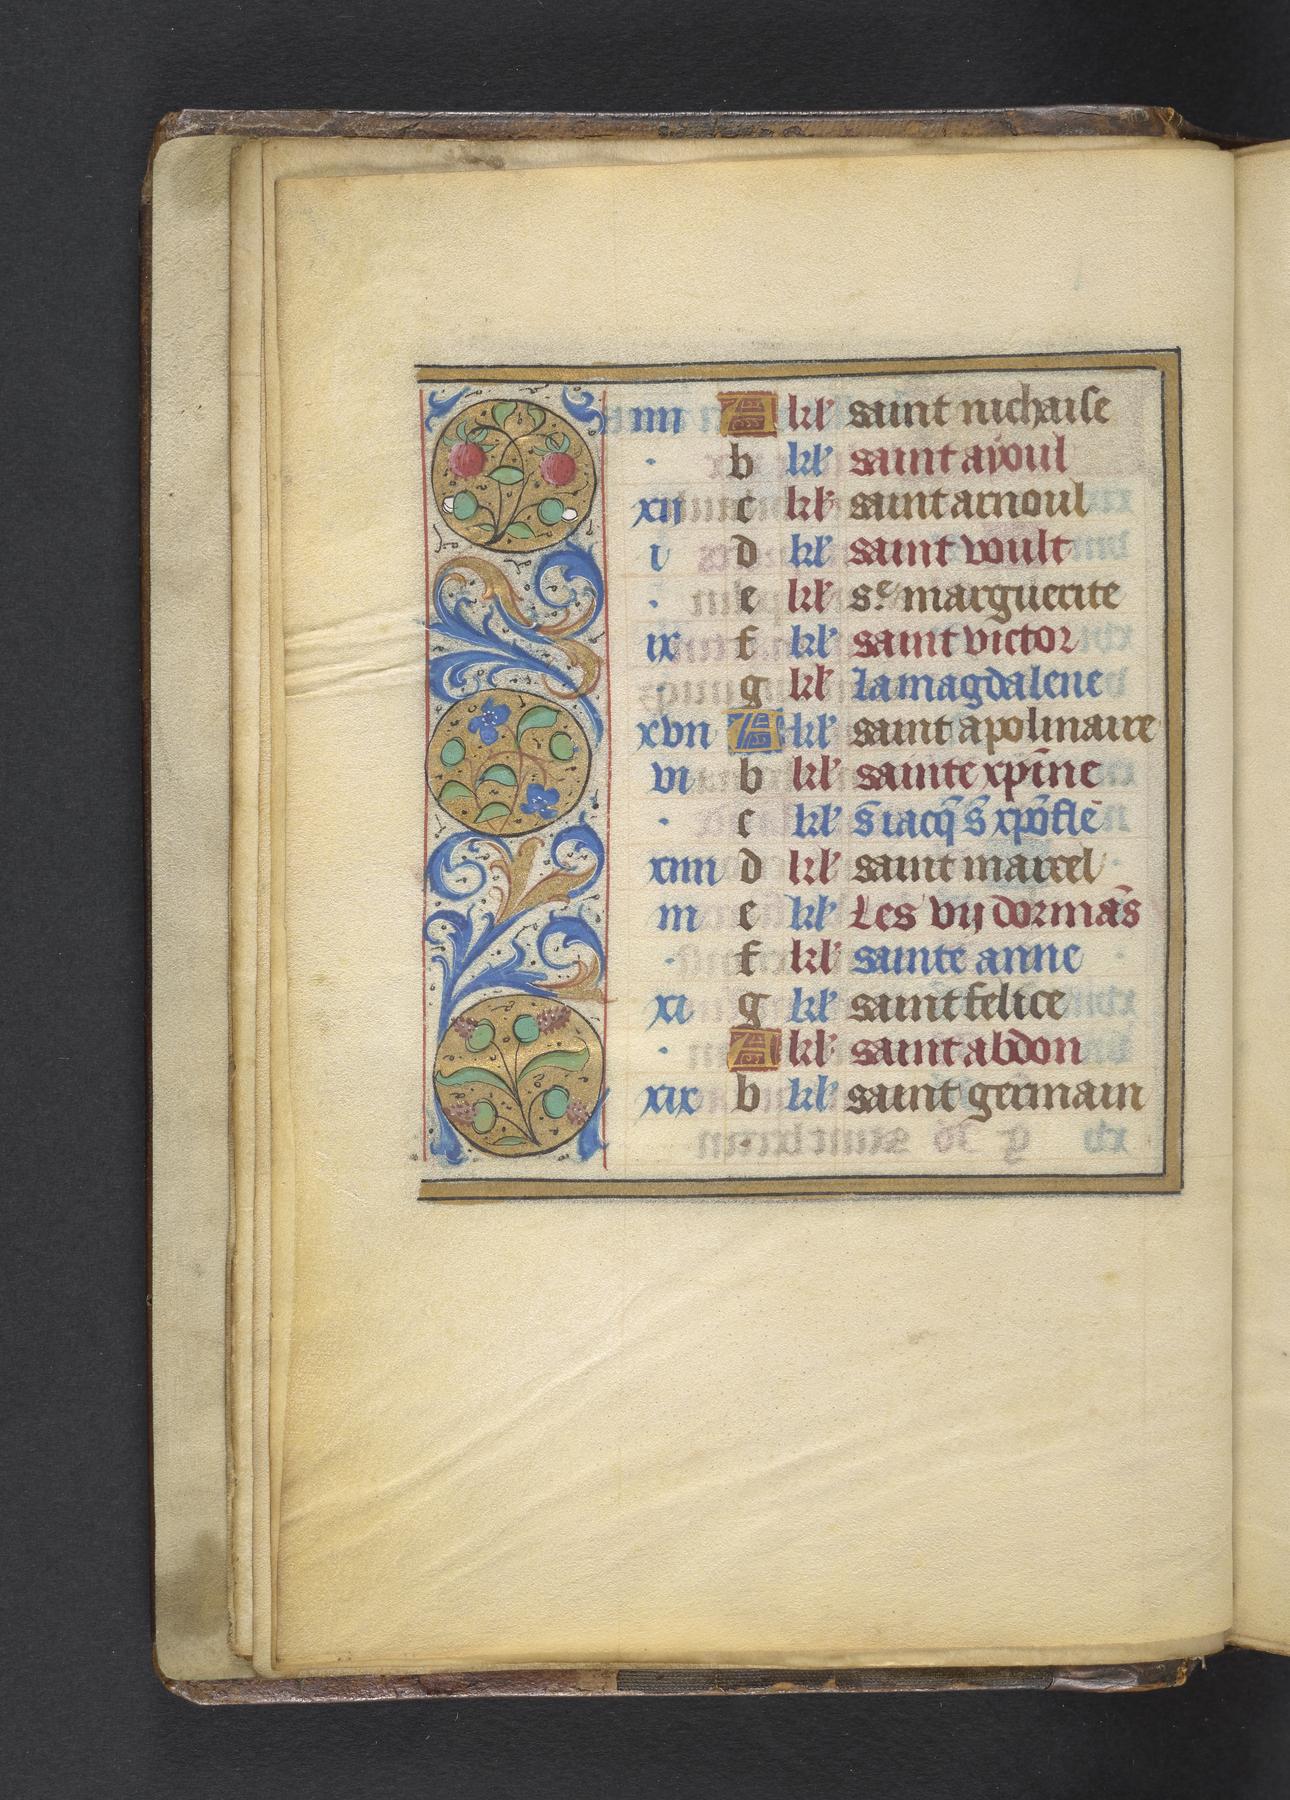 iiii A kl' saint nichaise
b kl' saint ayoul
xii c kl' saint arnoul
i d kl' saint voult
e kl' s.e marguerite
ix f kl' saint victor
g kl' la magdalene
xvii A kl' saint apolinaire
vi b kl' sainte xp̄ine
c kl' s̄ iacq̄ s̄ xp̄ofle
xiiii d kl' saint marcel
iii e kl' Les vij dormās
f kl' sainte anne
xi g kl' saint felice
A kl' saint abdon
xix b kl' saint germain